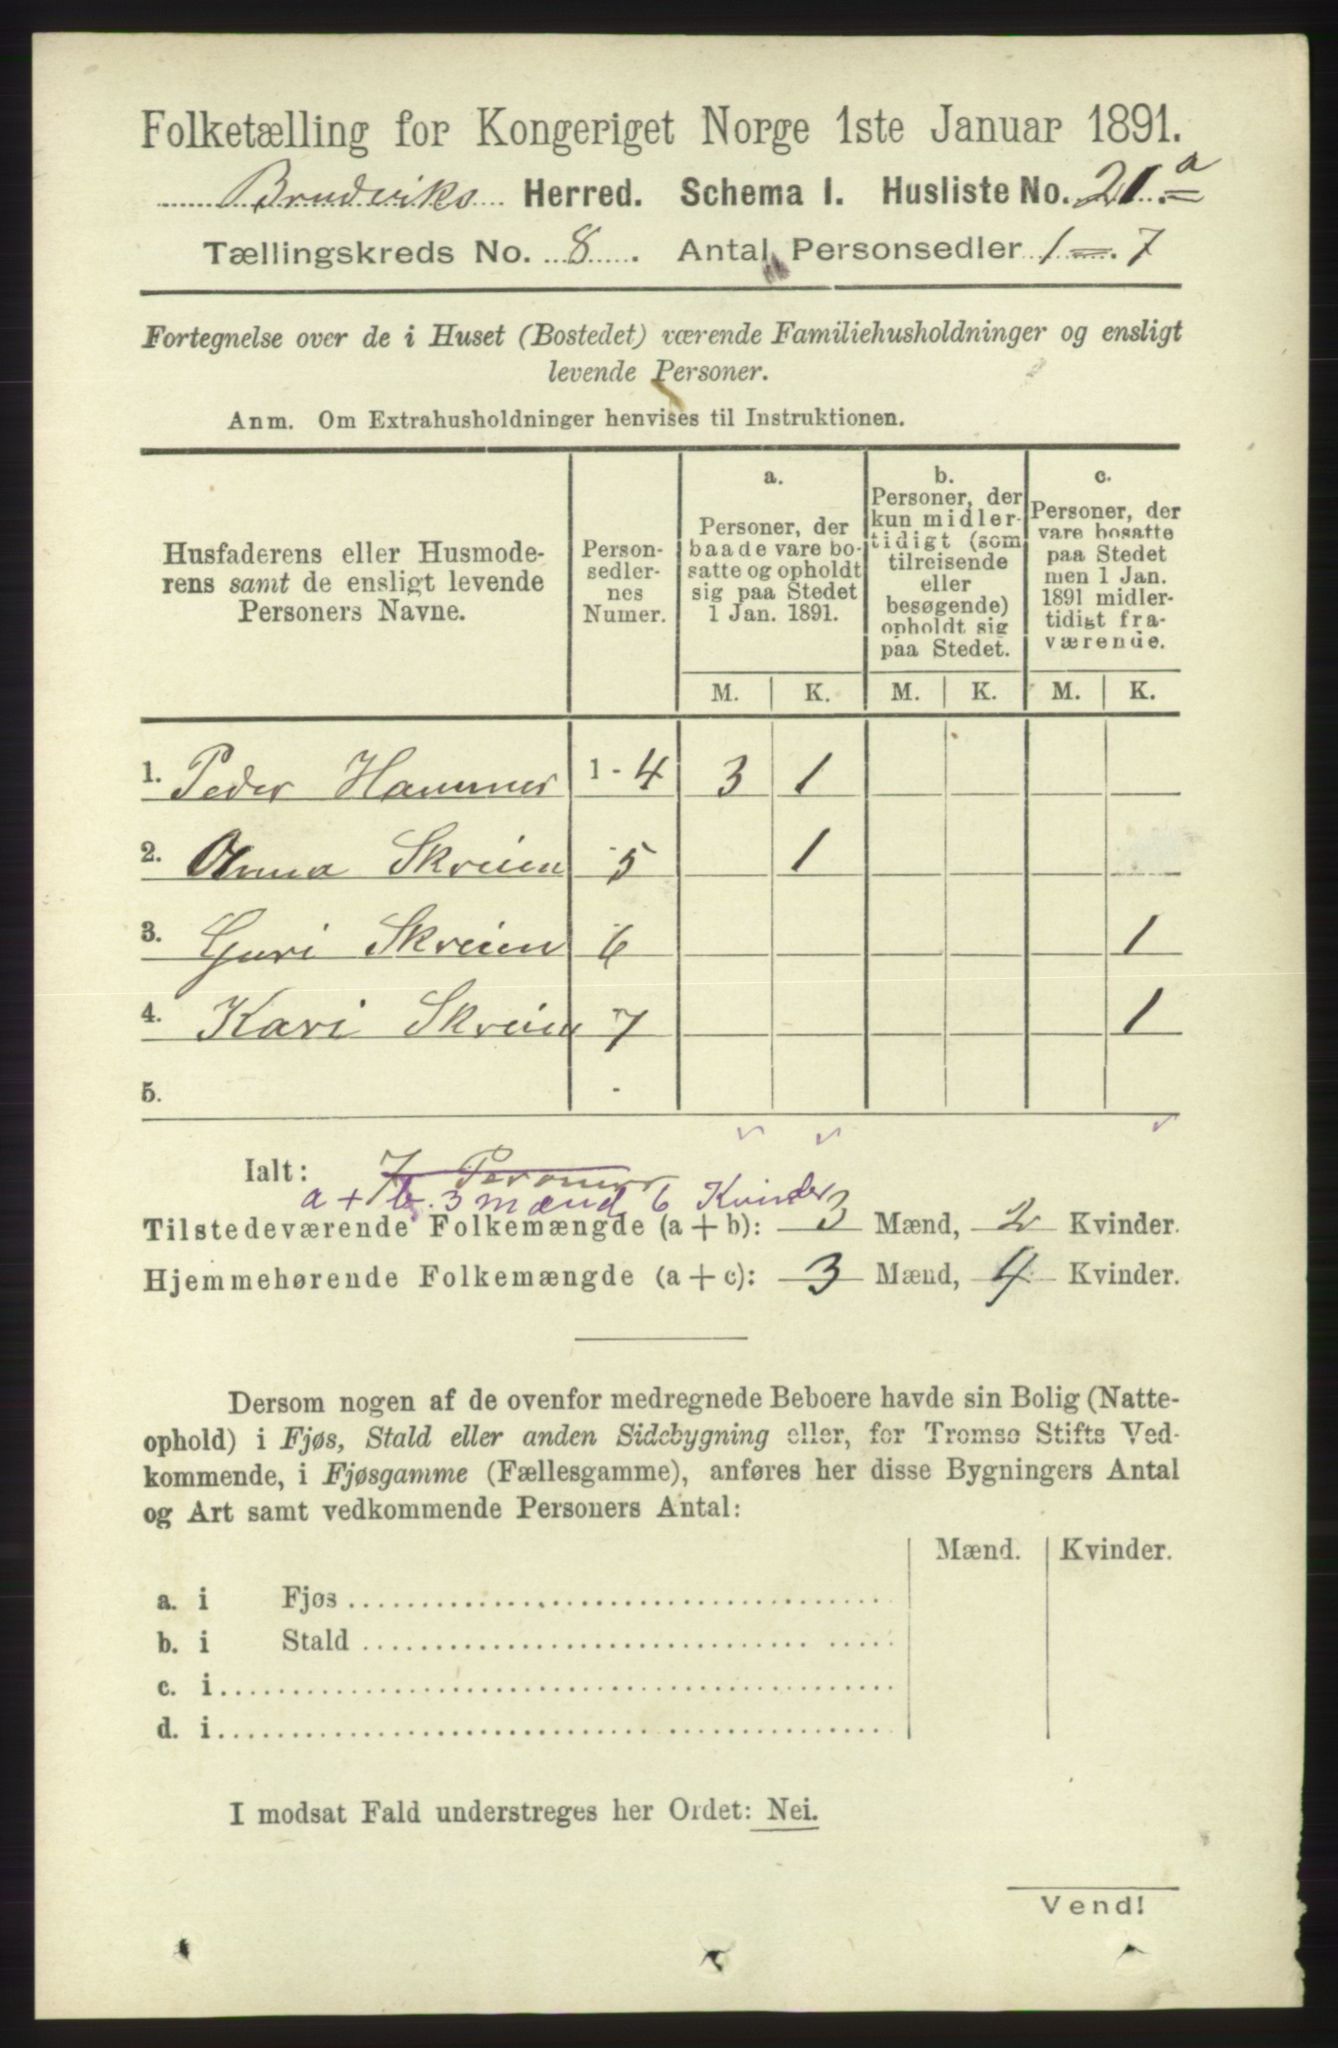 Folketælling for Kongeriget Norge 1ste Januar 1891.
Bruviks Herred. Schema I. Husliste No. 21.a
Tællingskreds No. 8. Antal Personsedler 1-7
Fortegnelse over de i Huset (Bostedet) værende Familiehusholdninger og ensligt
levende Personer.
Anm. Om Extrahusholdninger henvises til Instruktionen.
Husfaderens eller Husmode-
rens samt de ensligt levende
Personers Navne.
Person-
sedler-
nes
Numer.
a.
Personer, der
baade vare bo-
satte og opholdt
sig paa Stedet
1 Jan. 1891.
b.
Personer, der
kun midler-
tidigt (som
tilreisende
eller
besøgende)
opholdt sig
paa Stedet.
c.
Personer, der
vare bosatte
paa Stedet
men 1 Jan.
1891 midler-
tidigt fra-
værende.
M. K. M. K. M. K.
1. Peder Hammer 1 - 4 3 1
2. Anna Skreien 5 1
3. Guri Skreien 6 1
4. Kari Skreien 7 1
5. -
Ialt: 7 Personer
a + b. 3 mænd 6 Kvinder
Tilstedeværende Folkemængde (a + b): 3 Mænd, 2 Kvinder.
Hjemmehørende Folkemængde (a + c): 3 Mænd, 4 Kvinder.
Dersom nogen af de ovenfor medregnede Beboere havde sin Bolig (Natte-
ophold) i Fjøs, Stald eller anden Sidebygning eller, for Tromsø Stifts Ved-
kommende, i Fjøsgamme (Fællesgamme), anføres her disse Bygningers Antal
og Art samt vedkommende Personers Antal:
Mænd. Kvinder.
a. i Fjøs
b. i Stald
c. i
d. i
I modsat Fald understreges her Ordet: Nei.
Vend!